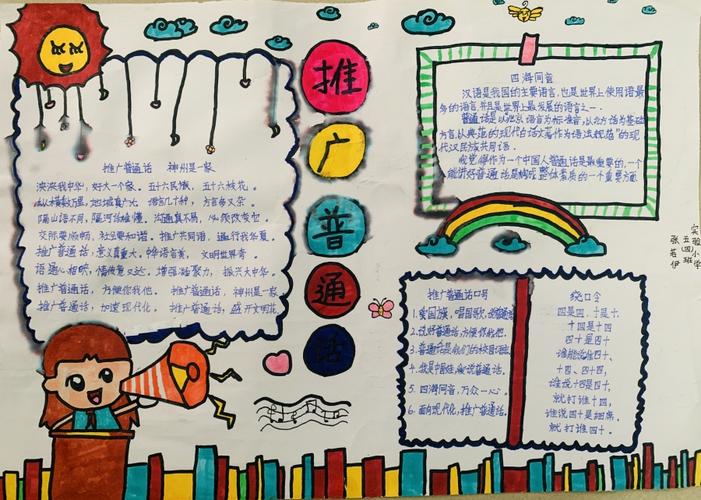 推广普通话
推广普通话 神州是一家
泱泱我中华，好大一个家。五十六民族，五十六枝花。
纵横数万里，地域真广大。语言几十种，方言多又杂。
隔山语不同，隔河话难懂。沟通真不易，必须改变它。
交际要顺畅，社会要和谐。推广共同语，通行我华夏。
推广普通话，意义真重大。
语通心相映，情
增强凝聚力，振兴大中华。
推广普通话，方便你我他。推广普通话，神州是一家
推广普通话，加速现代化。推广普通话，盛开文明花
四海同音
汉语是我国的主要语言，也是世界上使用语最
多的语言，并且是世界上最发展的语言之一。
普通话是以北京语言为标准音，以北方话为基础
方言，以典范的现代白话文著作为语法规范"的现
代汉民族共同语。
我觉得作为一个中国人普通话是最重要的，一个人
能讲好普通话是构成整体素质的一个重要方面
推广普通话口号
1.爱国旗，唱国歌，说普通话
2.说好普通话，方便你我他。
3.普通话是我们的校园语言
4.我是中国娃，爱说普通话。
5.四海同音，万众一心。
6.面向现代化，推广普通话。
绕口令
四是四，十是十
十四是十四
四十是四十
谁能说准四十、
十四、四十四，
谁说十四是四十，
就打谁十四，
谁说四十是细席，
就打谁四十。
实验小学
五(四)班
张若伊